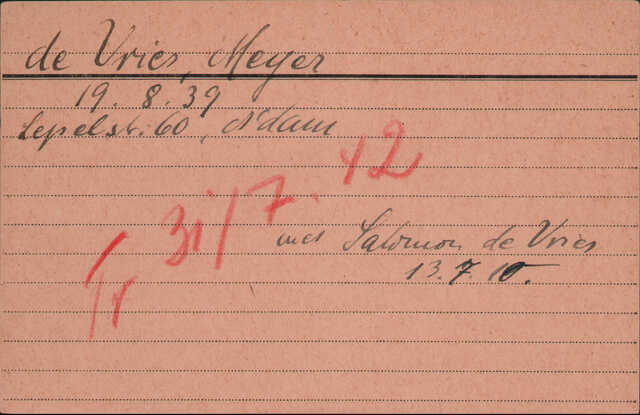 de Vries, Meyer
19. 8. 39
Lepelstr. 60, A'dam
Tr 31/7. 42
met Salomon de Vries
13.7.10.